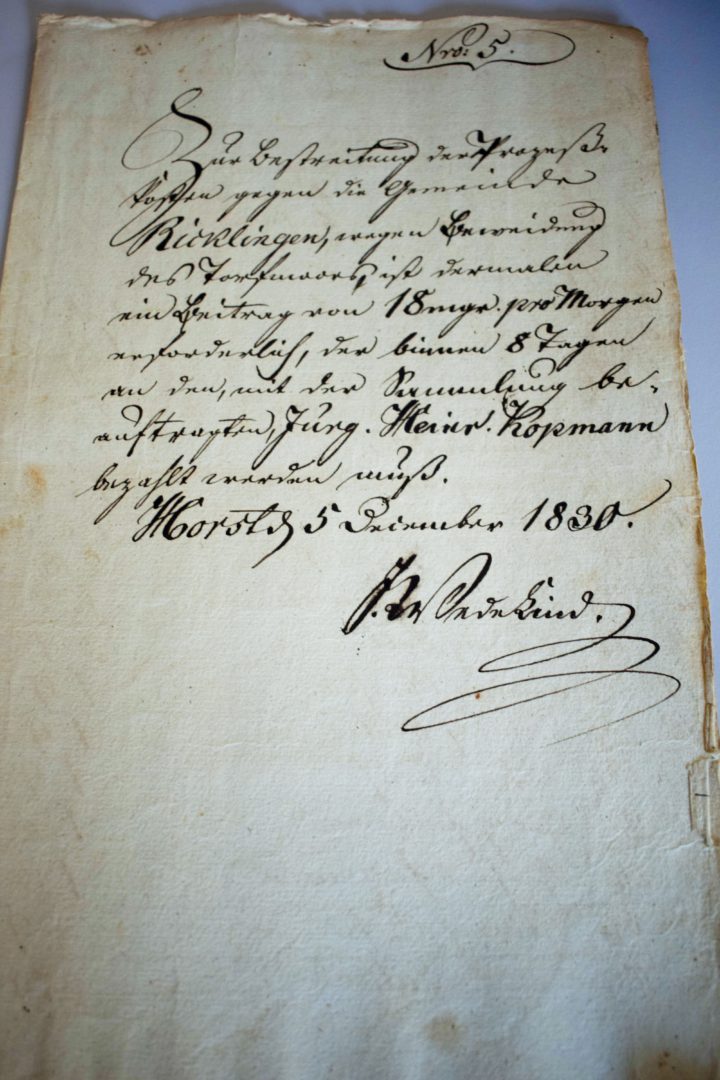 Nro: 5.
Zur Bestreitung der Prozeß-
kosten gegen die Gemeinde
Ricklingen, wegen Beweidung
des Torfmoors, ist dermalen
ein Beitrag von 18 mgr. pro Morgen
erforderlich, der binnen 8 Tagen
an den, mit der Sammlung be-
auftragten, Jürg. Heinr. Kopmann
bezahlt werden muß.
Horst d 5 December 1830.
Wedekind.